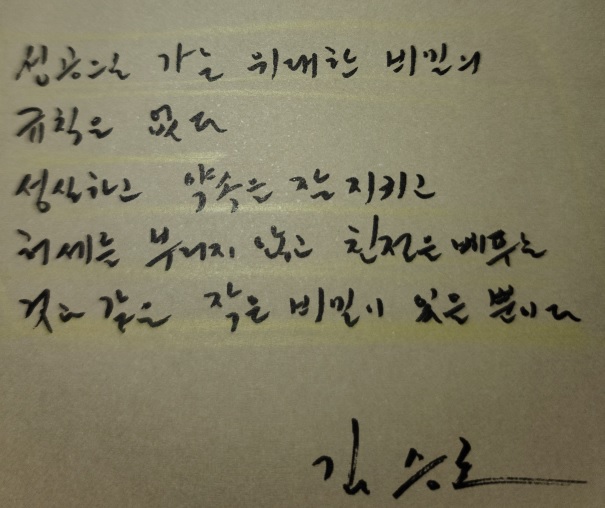 성공으로 가는 위대한 비밀의
규칙은 없다
성실하고 약속은 잘 지키고
허세를 부리지 않고 친절은 베푸는
것과 같은 작은 비밀이 있을 뿐이다
김승호